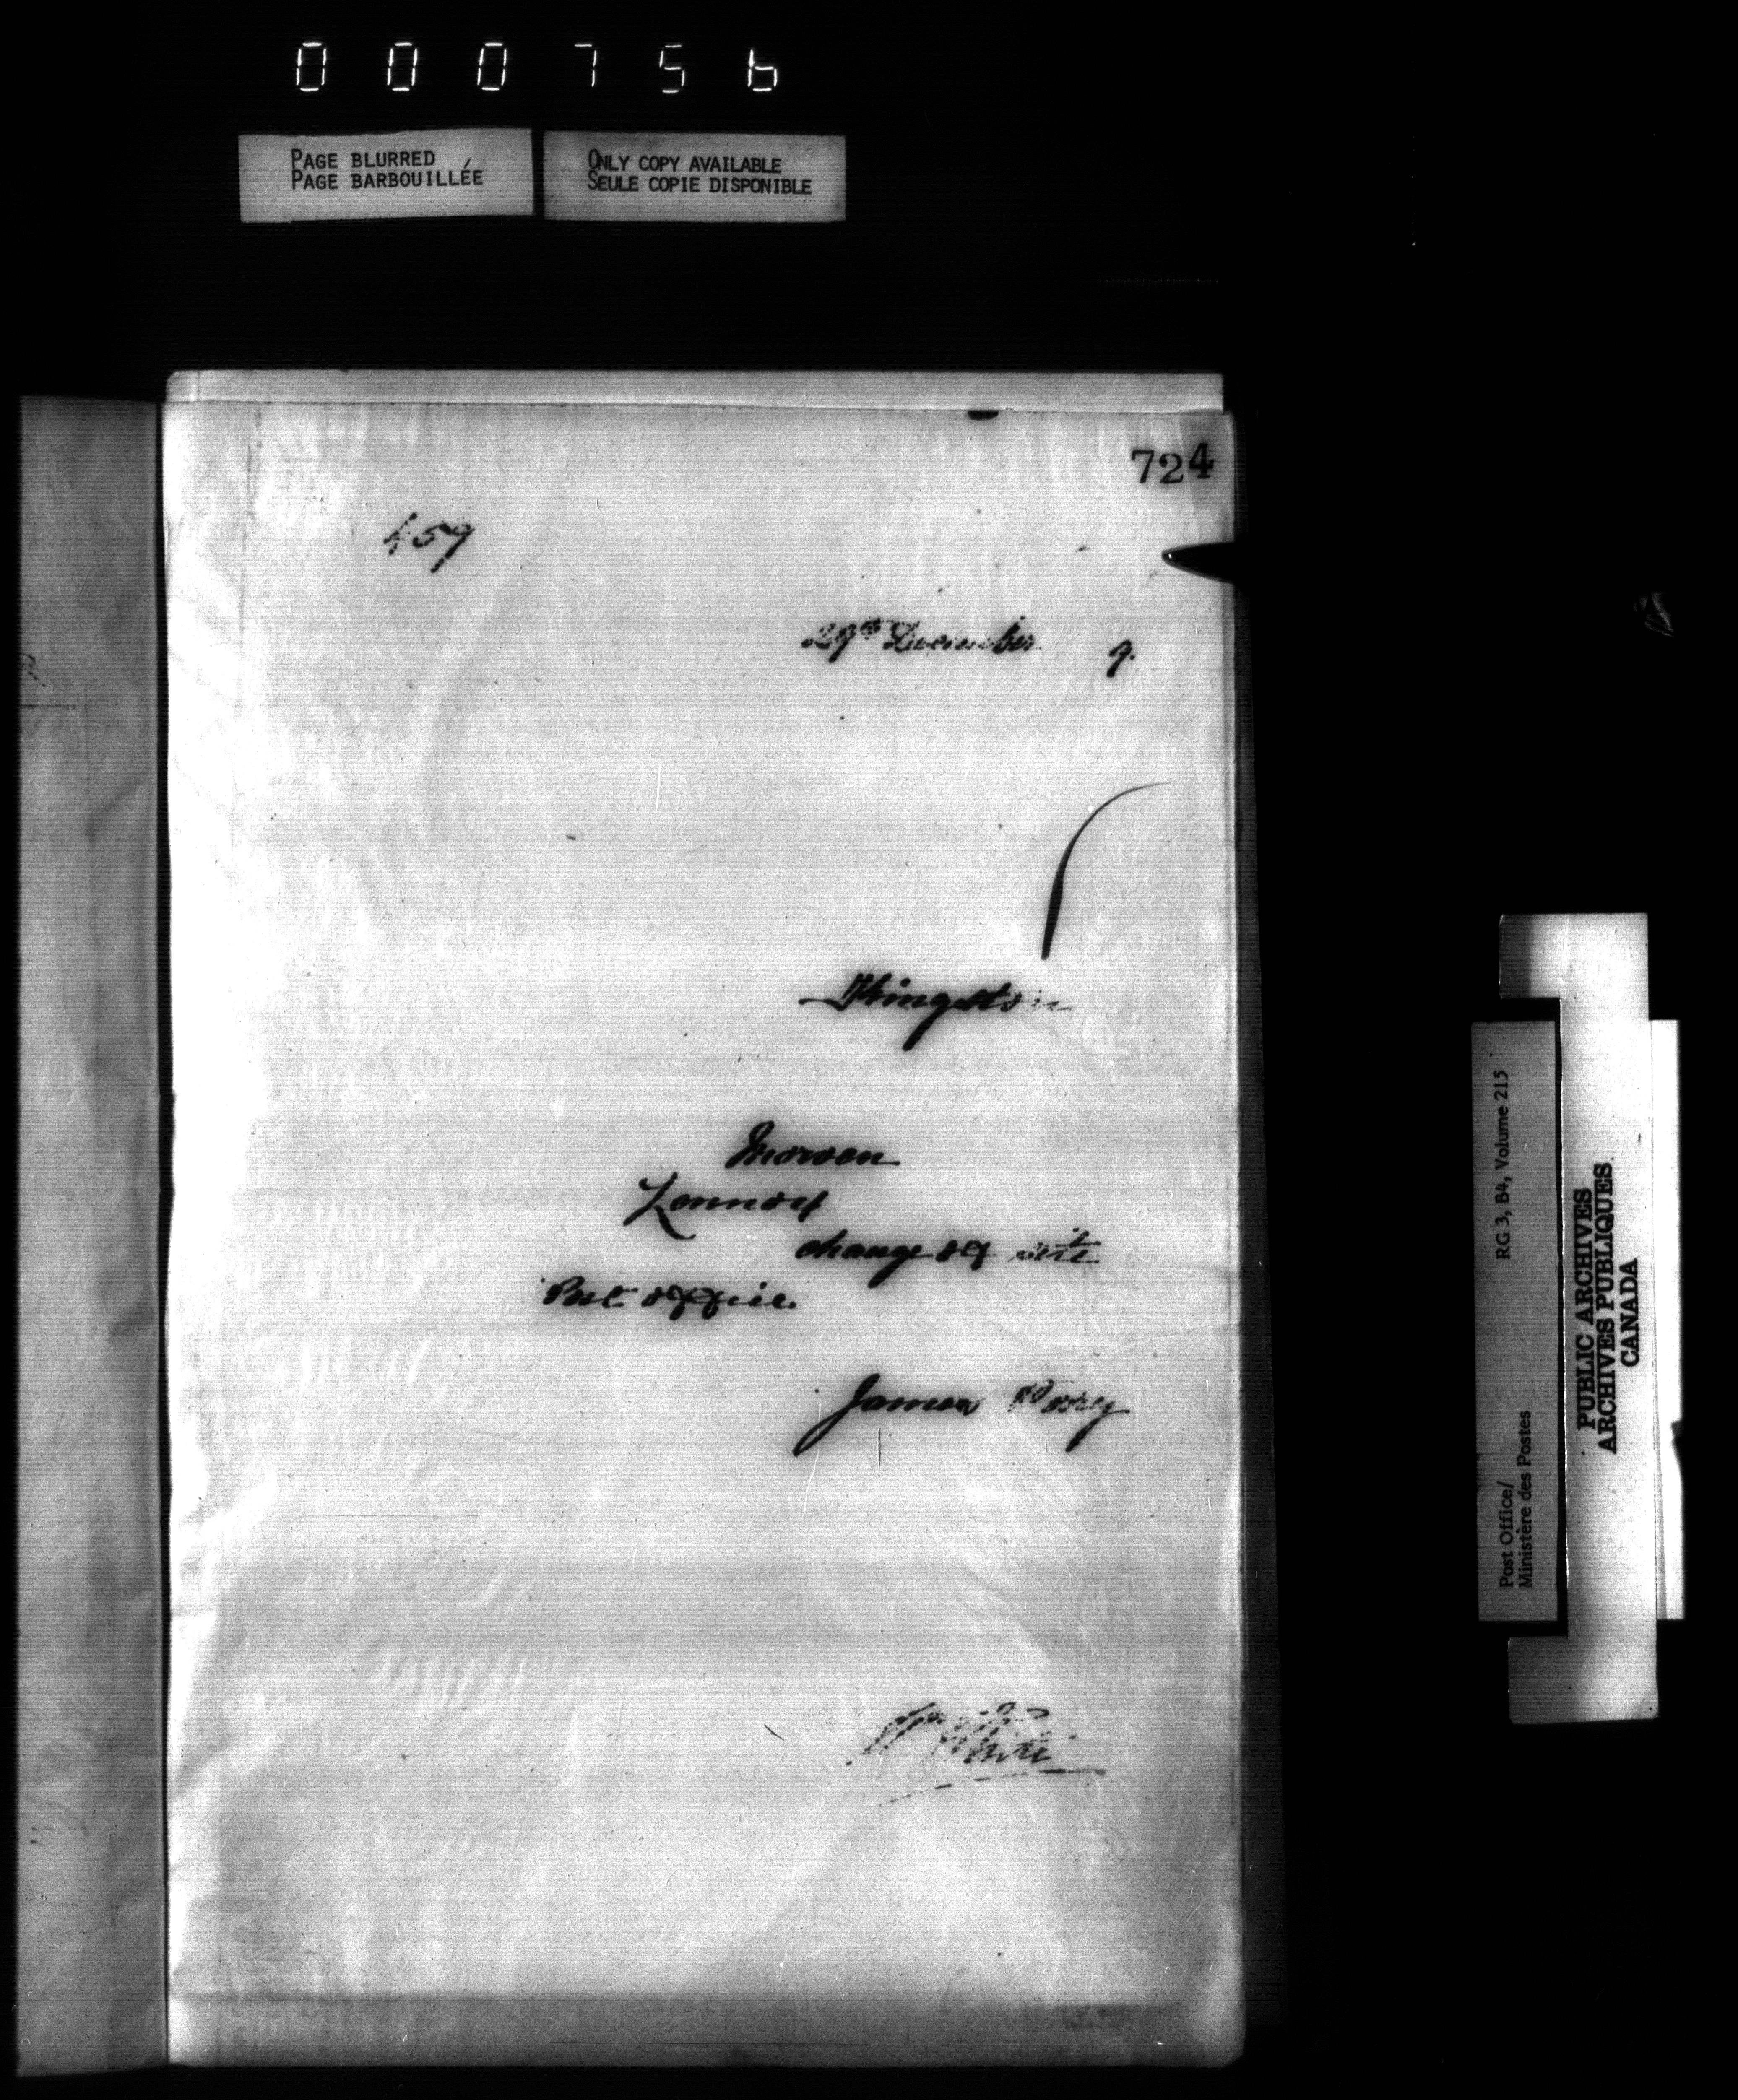 000756
PAGE BLURRED
PAGE BARBOUILLÉE
ONLY COPY AVAILABLE
SEULE COPIE DISPONIBLE
724
459
29th December 9.
Kingston
Morven
Lennox
change of site
Post office
James
Wm White
RG 3, B4, Volume 215
Post Office/
Ministère des Postes
PUBLIC ARCHIVES
ARCHIVES PUBLIQUES
CANADA